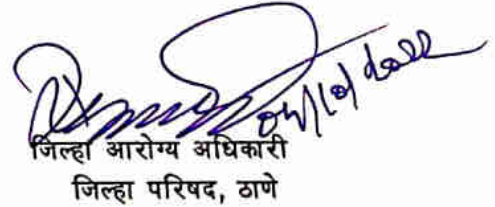 जिल्हा आरोग्य अधिकारी
जिल्हा परिषद, ठाणे